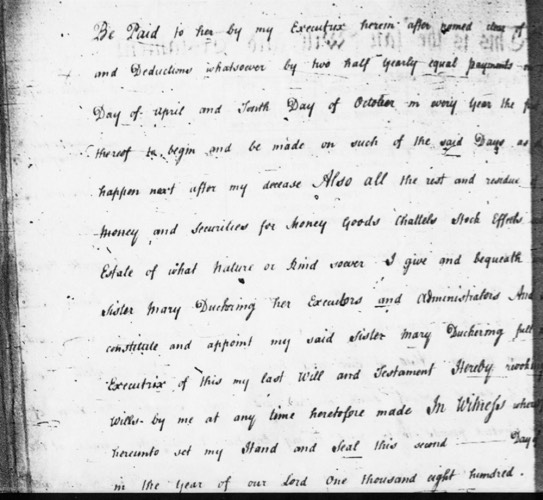 Be Paid to her by my Executrix herein after named clear of
and Deductions whatsoever by two half yearly equal payments on
Day of April and Tenth Day of October in every Year the
thereof to begin and be made on such of the said Days as
happen next after my decease Also all the rest and residue
Money and Securities for Money Goods Chattels Stock Effects
Estate of what Nature or Kind soever I give and bequeath
Sister Mary Duckering her Executors and Administrators And
constitute and appoint my said Sister Mary Duckering full
Executrix of this my last Will and Testament Hereby
Wills by me at any time heretofore made In Witness
hereunto set my Hand and Seal this second Day
in the Year of our Lord One thousand eight hundred.